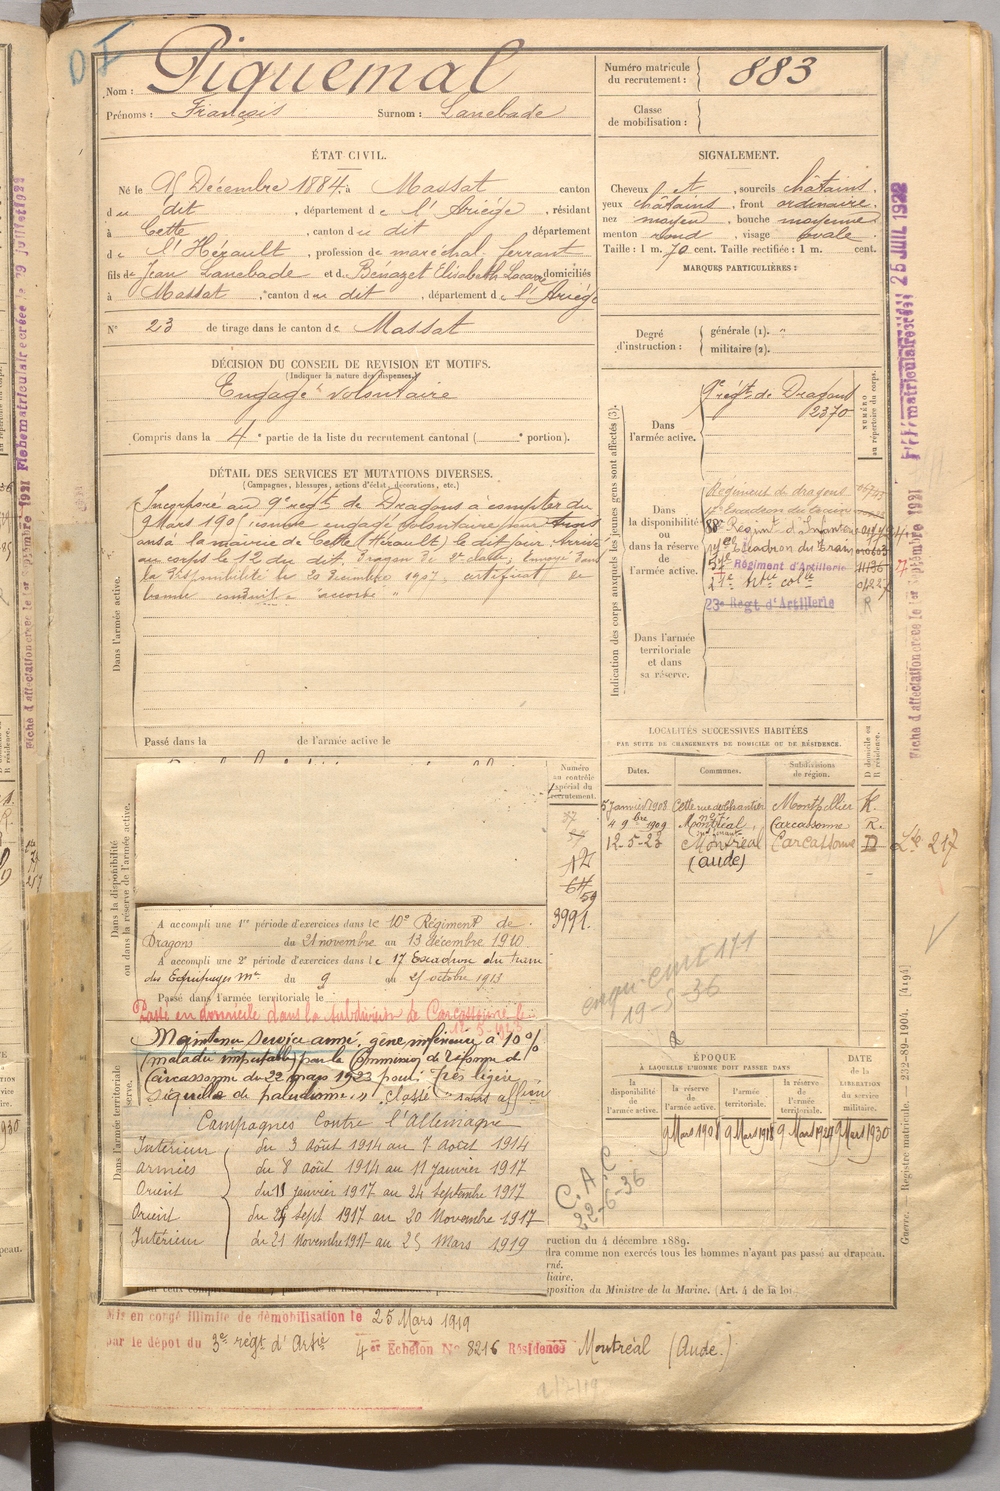 DI
Nom : Piquemal
Prénoms : François Surnom : Lanebade
Numéro matricule du recrutement : 883
Classe de mobilisation :
ÉTAT CIVIL.
Né le 95 Décembre 1884, à Massat canton
du dit, département de l'Ariège, résidant
à Cette, canton du dit département
de l'Hérault, profession de maréchal ferrant
fils de Jean Lanebade et de Benazet Elisabeth domiciliés
à Massat, canton du dit, département de l'Ariège
N° 23 de tirage dans le canton de Massat
DÉCISION DU CONSEIL DE REVISION ET MOTIFS.
(Indiquer la nature des dispenses.)
Engagé Volontaire
Compris dans la 4e partie de la liste du recrutement cantonal ( e portion).
DÉTAIL DES SERVICES ET MUTATIONS DIVERSES.
(Campagnes, blessures, actions d'éclat, décorations, etc.)
Incorporé au 9e regt de Dragons à compter du
9 Mars 190 comme engagé volontaire pour
ans à la mairie de Cette (Hérault) le dit jour. Arrivé
au corps le 12 du dit. Dragon de 2e classe; Envoyé dans
la disponibilité le 20 Decembre 1907, certificat de
bonne conduite "accordé"
Dans l'armée active.
Passé dans la de l'armée active le
SIGNALEMENT.
Cheveux et, sourcils châtains,
yeux châtains, front ordinaire,
nez moyen, bouche moyenne
menton rond, visage ovale.
Taille : 1 m. 70 cent. Taille rectifiée : 1 m. cent.
MARQUES PARTICULIÈRES :
Degré d'instruction : générale (1). "
militaire (2).
Indication des corps auxquels les jeunes gens sont affectés (3).
NUMÉRO au répertoire du corps.
Dans l'armée active.
9e régt de Dragons
2370
Dans la disponibilité ou dans la réserve de l'armée active.
Régiment de dragons
Escadron du train
Regint d'Infanterie
19e Escadron du Train
57e Régiment d'Artillerie
Artie colle
23e Regt d'Artillerie R
Dans l'armée territoriale et dans sa réserve.
Fiche matriculaire créée le 29 juillet 1922
Fiche d'affectation créée le 1er septembre 1921
25 JUIL 1922
Fiche d'affectation créée le 1er septembre 1921
LOCALITÉS SUCCESSIVES HABITÉES
PAR SUITE DE CHANGEMENTS DE DOMICILE OU DE RÉSIDENCE.
Dates. Communes. Subdivisions de région. D domicile ou R résidence.
5 Janvier 1908 Cette rue de Montpellier R.
4 9bre 1909 Montréal Carcassonne R.
12-5-23 Montréal (aude) Carcassonne D
217
Numéro au contrôle spécial du recrutement.
12
59
3991.
19-5-36
Dans la disponibilité ou dans la réserve de l'armée active.
A accompli une 1re période d'exercices dans le 10e Régiment de
Dragons du 21 novembre au 13 décembre 1910
A accompli une 2e période d'exercices dans le 17 Escadron du train
des Equipages Mre du 9 au 25 octobre 1913
Passé dans l'armée territoriale le
Passé en domicile dans la subdivision de Carcassonne le
12-5-1923
Maintenu Service armé, gêne inférieure à 10%
(maladie imputable) par la Commission de réforme de
Carcassonne du 22 mars 1923 pour : très légère
séquelle de paludisme, Classé sans affon
Campagnes Contre l'Allemagne
Intérieur du 3 août 1914 au 7 août 1914
armées du 8 août 1914 au 11 janvier 1917
Orient du 11 janvier 1917 au 24 septembre 1917
Orient du 25 sept 1917 au 20 Novembre 1917
Intérieur du 21 Novembre 1917 au 25 Mars 1919
Dans l'armée territoriale
ÉPOQUE
À LAQUELLE L'HOMME DOIT PASSER DANS
DATE de la LIBÉRATION du service militaire.
la disponibilité de l'armée active.
la réserve de l'armée active.
l'armée territoriale.
la réserve de l'armée territoriale.
9 Mars 1908 9 Mars 1918 9 Mars 1924 9 Mars 1930
C.A.C.
22-6-36
Guerre. — Registre matricule. — 232-89-1904. [4194]
ruction du 4 décembre 1889.
dra comme non exercés tous les hommes n'ayant pas passé au drapeau.
rné.
liaire.
position du Ministre de la Marine. (Art. 4 de la loi
Mis en congé illimité de démobilisation le 25 Mars 1919
par le dépôt du 3e régt d'Artie 4er Echelon N° 8216 Résidence Montréal (Aude.)